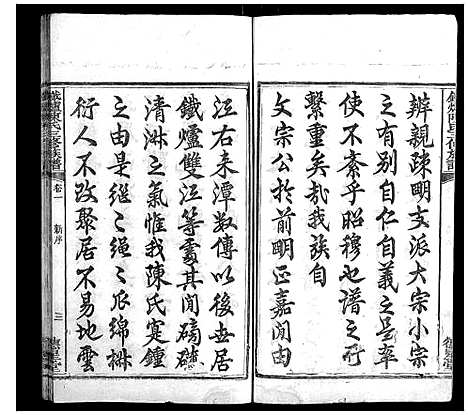 辨親疎明支派大宗小宗
之有别自仁自義之是率
使不紊乎昭穆也譜之所
繫重矣哉我族自
文宗公於前明正嘉間由
江右来潭数傳以後世居
鐵爐雙江等處其間磅礴
清淋之氣惟我陳氏寔鍾
之由是繼之繩之瓜綿椒
衍人不改聚居不易地雲
卷一
新序
三